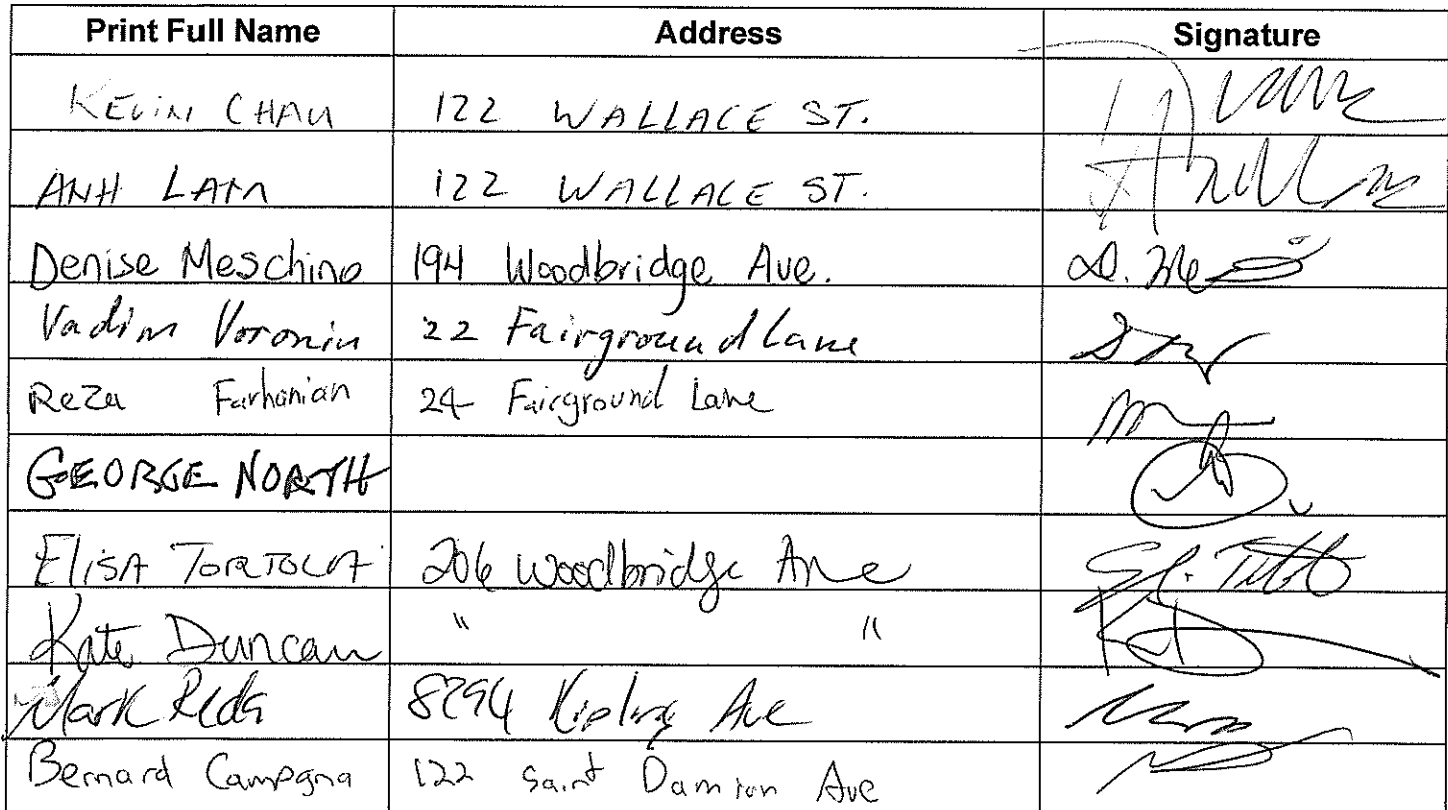 Print Full Name Address Signature
KEVIN CHAU 122 WALLACE ST.
ANH LAM 122 WALLACE ST.
Denise Meschino 194 Woodbridge Ave. D. Me
Vadim Voronin 22 Fairground Lane
Reza Farhanian 24 Fairground Lane
GEORGE NORTH
Elisa Tortola 206 Woodbridge Ave
Kate Duncan " "
Mark Reda 8294 Kipling Ave
Bernard Campagna 122 Saint Damian Ave